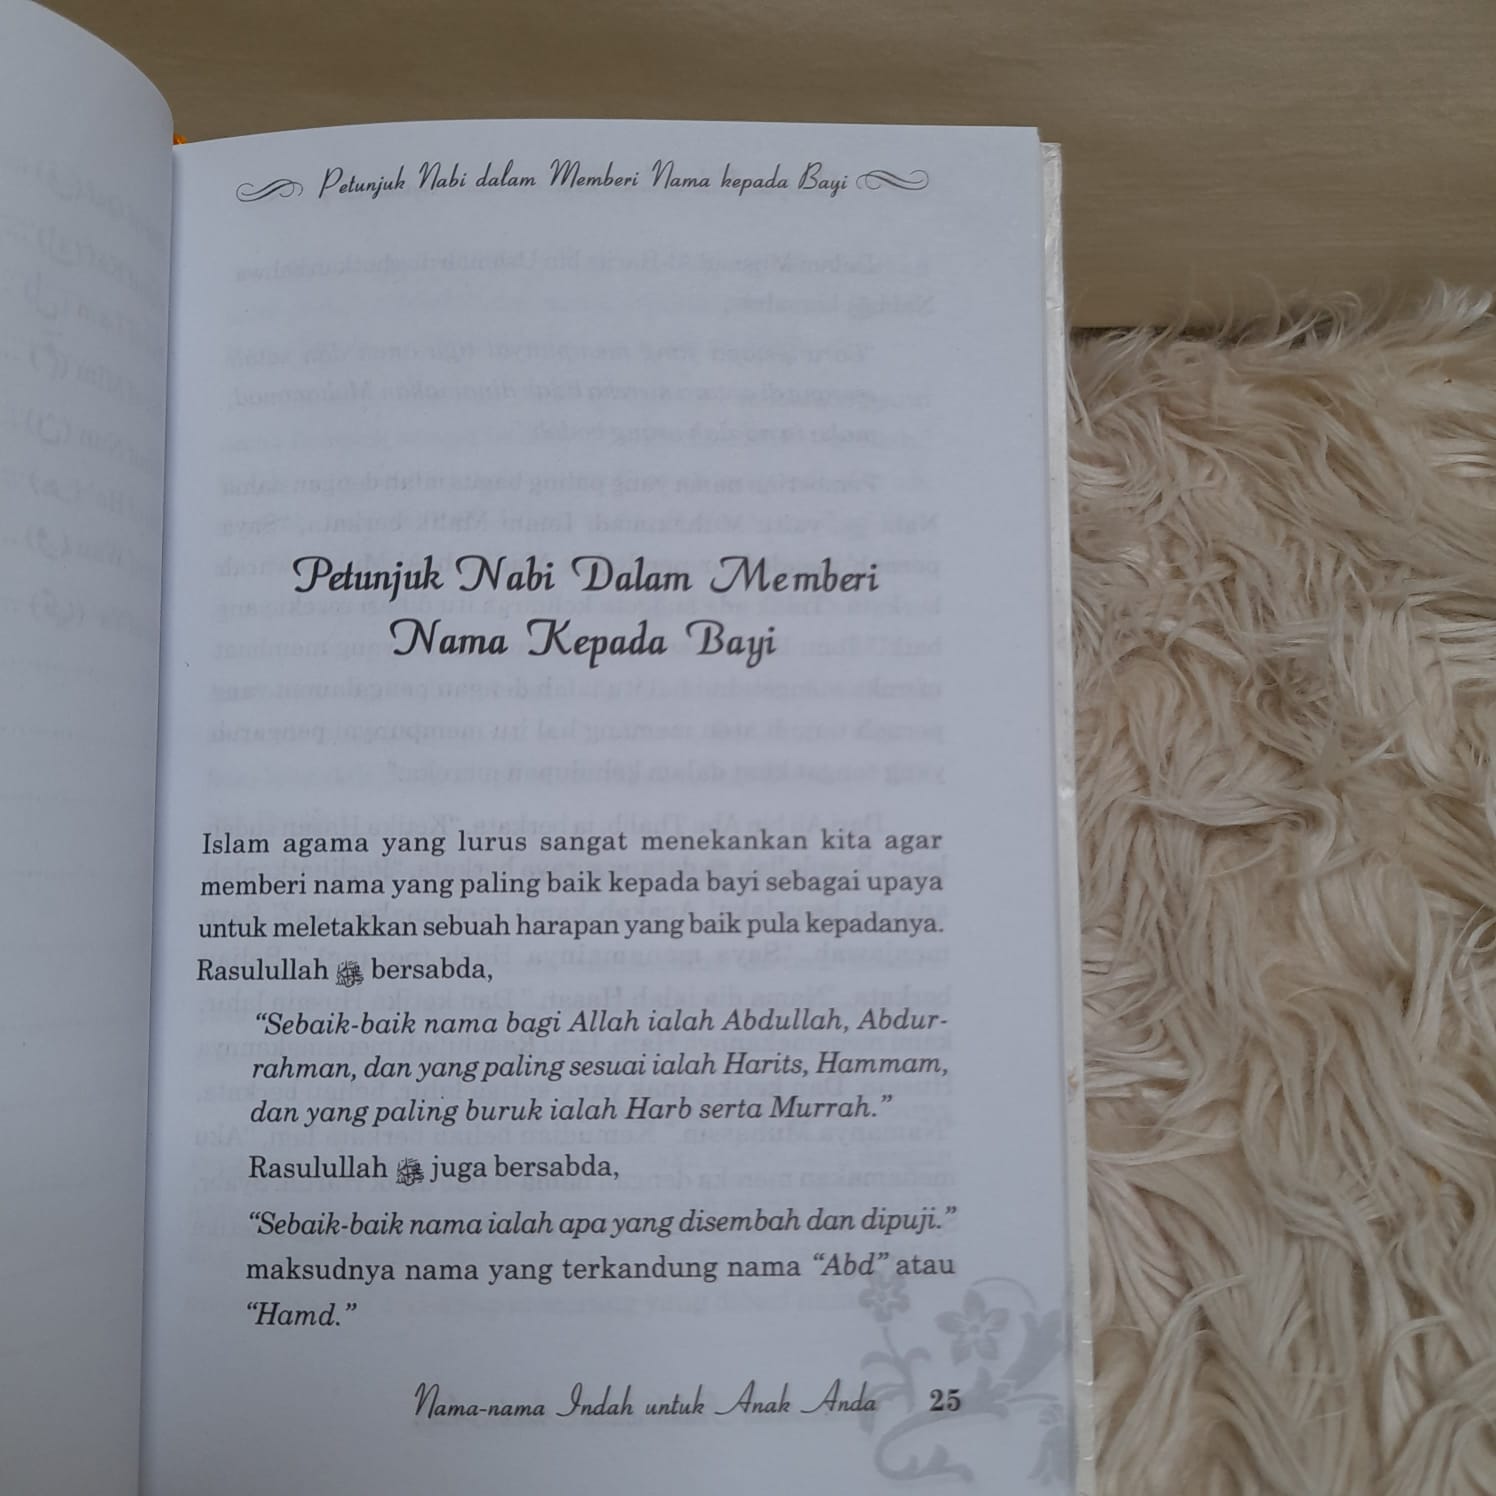 Petunjuk Nabi dalam Memberi Nama kepada Bayi
Petunjuk Nabi Dalam Memberi
Nama Kepada Bayi
Islam agama yang lurus sangat menekankan kita agar
memberi nama yang paling baik kepada bayi sebagai upaya
untuk meletakkan sebuah harapan yang baik pula kepadanya.
Rasulullah ﷺ bersabda,
“Sebaik-baik nama bagi Allah ialah Abdullah, Abdur-
rahman, dan yang paling sesuai ialah Harits, Hammam,
dan yang paling buruk ialah Harb serta Murrah.”
Rasulullah ﷺ juga bersabda,
“Sebaik-baik nama ialah apa yang disembah dan dipuji.”
maksudnya nama yang terkandung nama “Abd” atau
“Hamd.”
Nama-nama Indah untuk Anak Anda 25